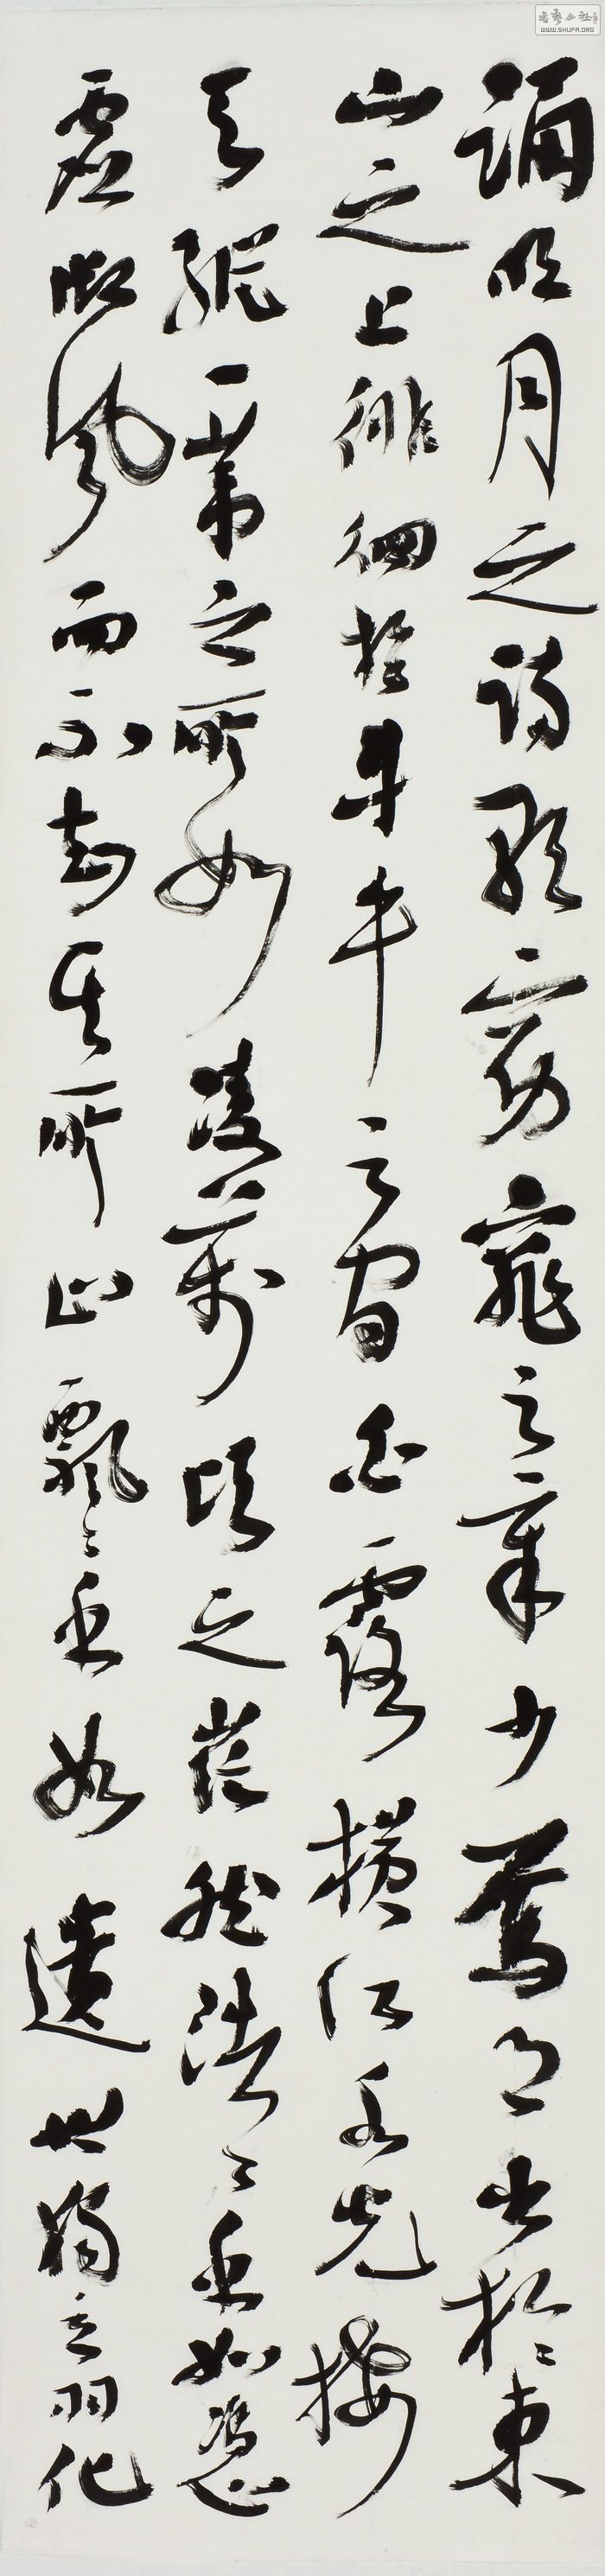 誦明月之詩歌窈窕之章少焉月出於東
山之上徘徊於斗牛之間白露橫江水光接
天縱一葦之所如凌萬頃之茫然浩〻乎如憑
虛御風而不知其所止飄〻乎如遺世獨立羽化
WWW.SHUFA.ORG